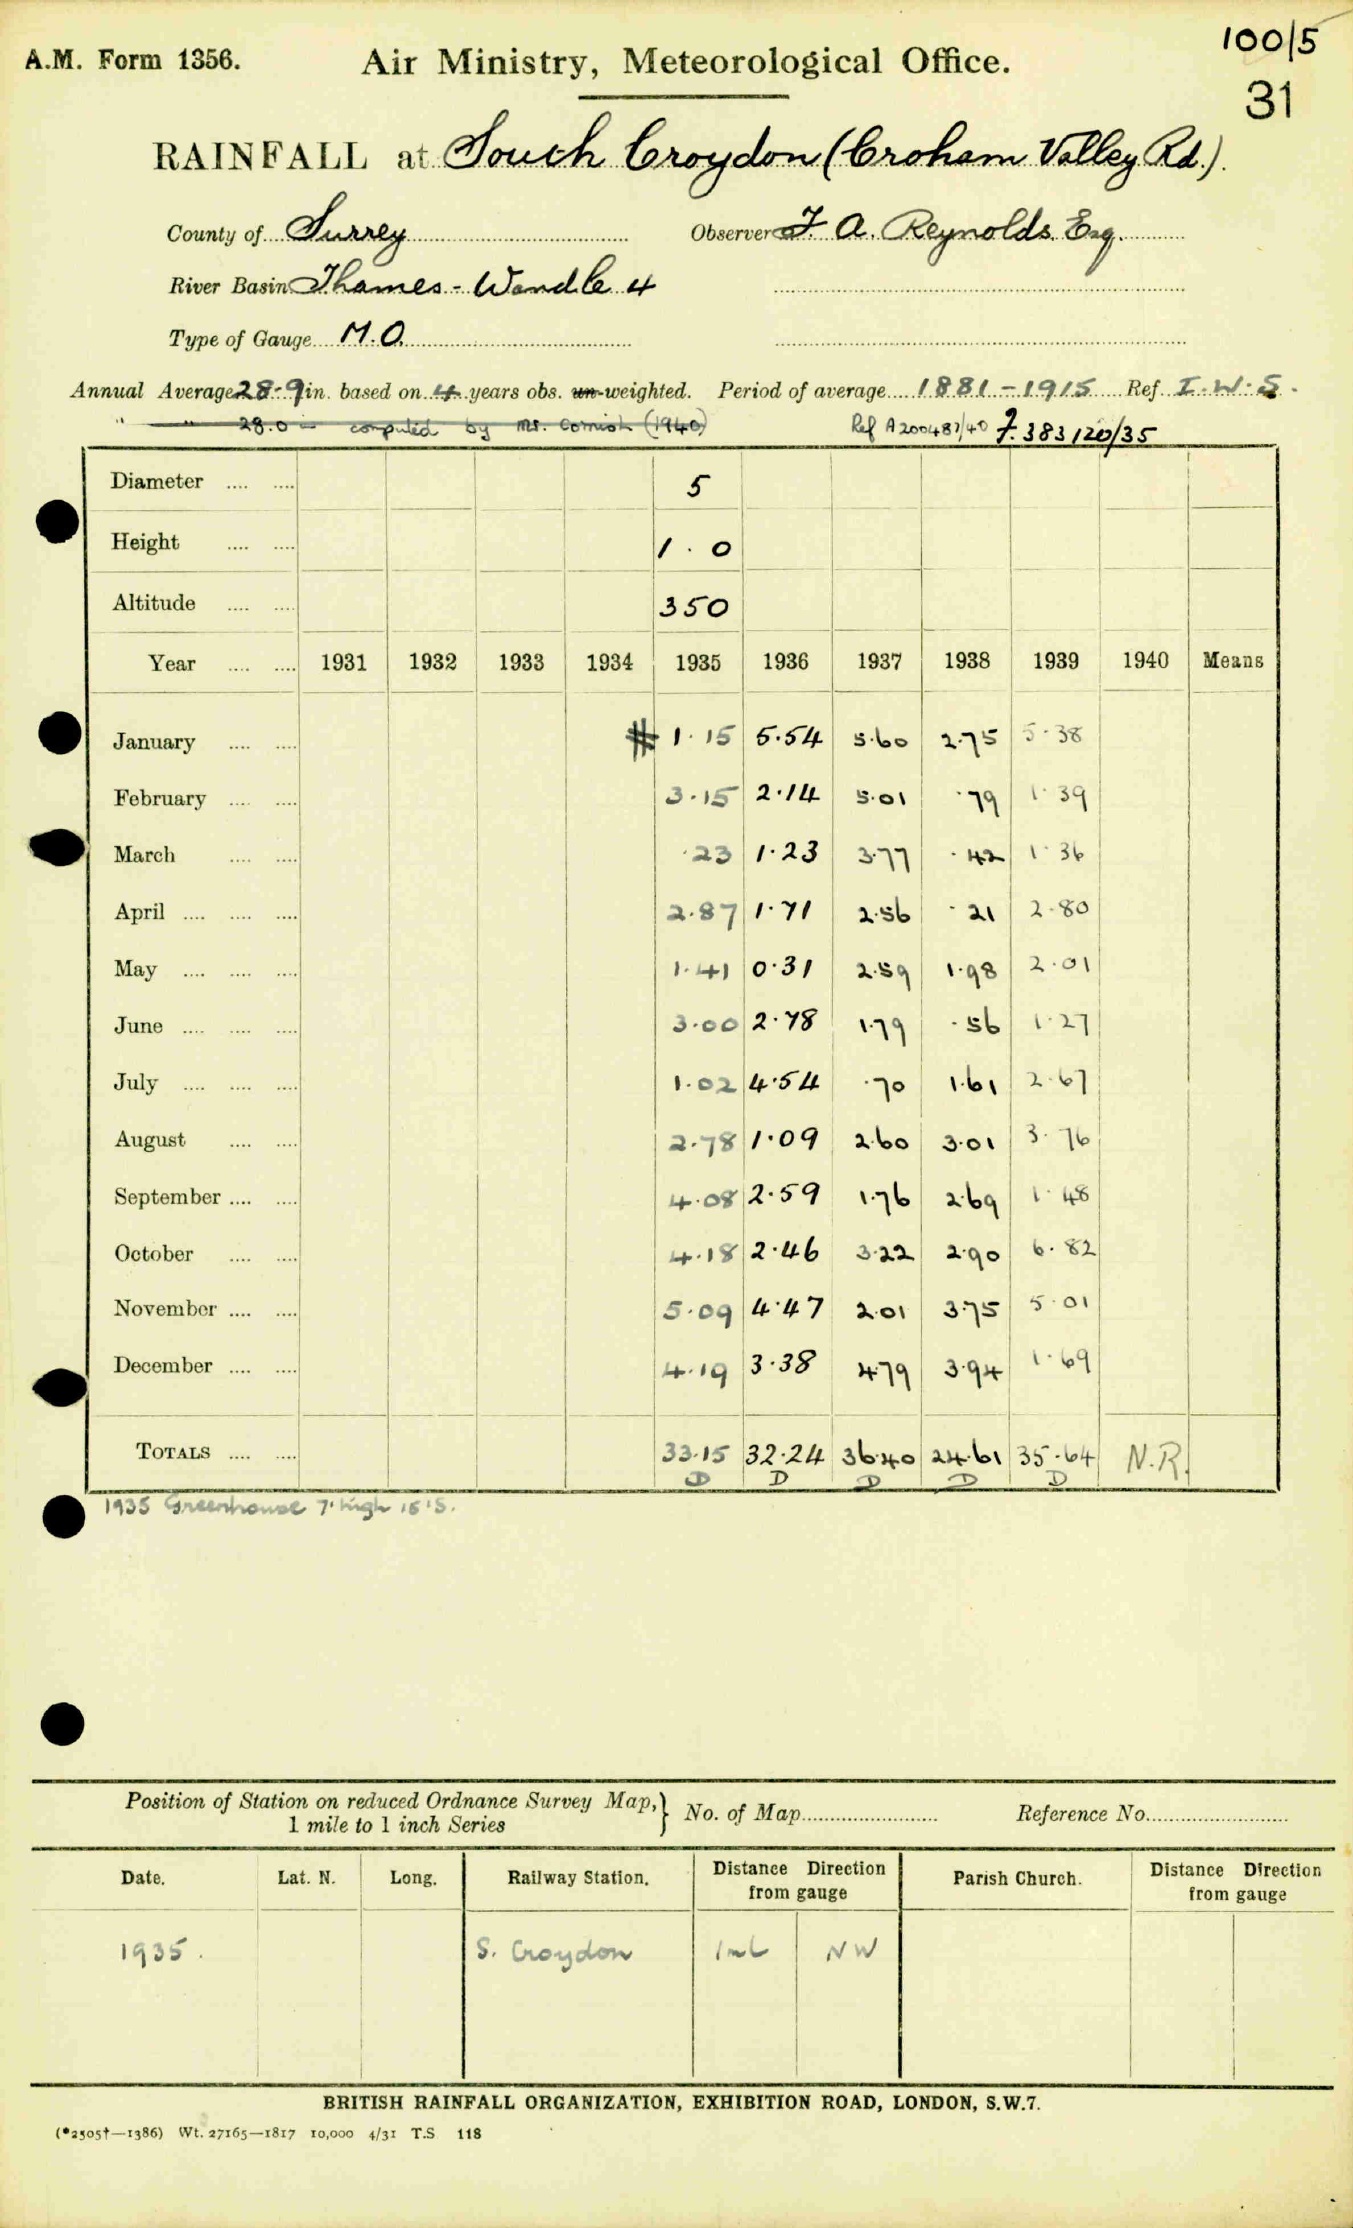 100/5
A.M. Form 1356. Air Ministry, Meteorological Office.
31
RAINFALL at South Croydon (Croham Valley Rd.).
County of Surrey Observer F. A. Reynolds Esq.
River Basin Thames - Wandle 4
Type of Gauge M.O.
Annual Average 28.9 in. based on 4 years obs. un-weighted. Period of average 1881-1915 Ref. I.W.S.
" " 28.0 in computed by Mr. Cornish (1940) Ref A200487/40 F. 383120/35
Diameter .... .... 5
Height .... .... 1.0
Altitude .... .... 350
Year .... .... 1931 1932 1933 1934 1935 1936 1937 1938 1939 1940 Means
January .... .... # 1.15 5.54 5.60 2.75 5.38
February .... .... 3.15 2.14 5.01 .79 1.39
March .... .... .23 1.23 3.77 .42 1.36
April .... .... .... 2.87 1.71 2.56 .21 2.80
May .... .... .... 1.41 0.31 2.59 1.98 2.01
June .... .... .... 3.00 2.78 1.79 .56 1.27
July .... .... .... 1.02 4.54 .70 1.61 2.67
August .... .... 2.78 1.09 2.60 3.01 3.76
September .... .... 4.08 2.59 1.76 2.69 1.48
October .... .... 4.18 2.46 3.22 2.90 6.82
November .... .... 5.09 4.47 2.01 3.75 5.01
December .... .... 4.19 3.38 4.79 3.94 1.69
TOTALS .... .... 33.15 32.24 36.40 24.61 35.64 N.R.
D D D D D
1935 Greenhouse 7' high 15' S.
Position of Station on reduced Ordnance Survey Map, } No. of Map Reference No.
1 mile to 1 inch Series
Date. Lat. N. Long. Railway Station. Distance Direction from gauge Parish Church. Distance Direction from gauge
1935. S. Croydon 1 ml NW
BRITISH RAINFALL ORGANIZATION, EXHIBITION ROAD, LONDON, S.W.7.
(*2505†—1386) Wt. 27165—1817 10,000 4/31 T.S 118